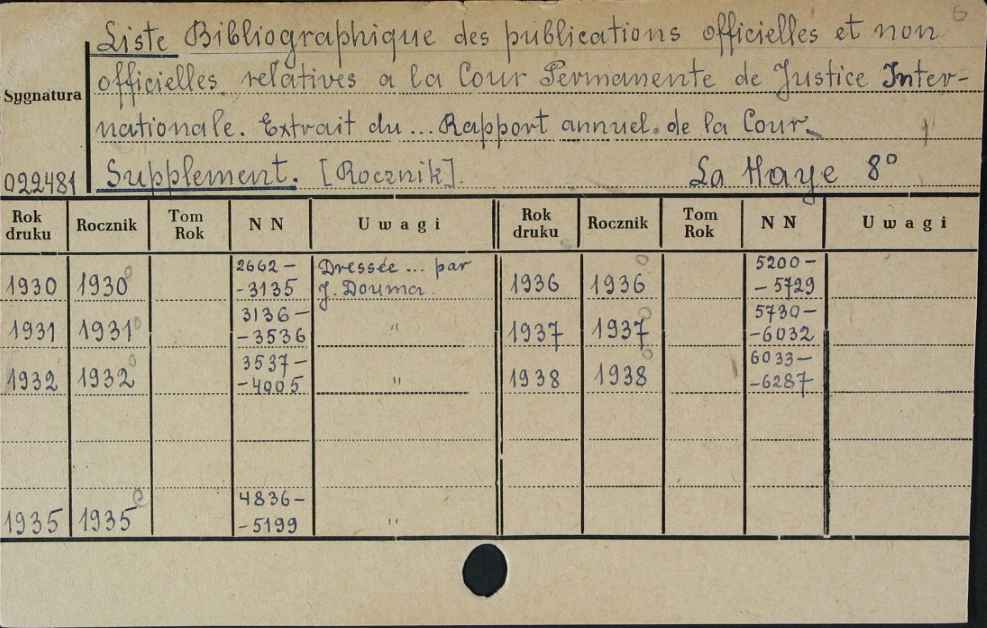 6
Liste Bibliographique des publications officielles et non
officielles relatives a la Cour Permanente de Justice Inter-
Sygnatura
nationale. Extrait du ... Rapport annuel. de la Cour.
022481 Supplement. [Rocznik]. La Haye 8°
Rok druku Rocznik Tom Rok N N Uwagi Rok druku Rocznik Tom Rok N N Uwagi
1930 1930 2662- -3135 Dressée ... par J. Douma. 1936 1936 5200- -5729
1931 1931 3136- -3536 " 1937 1937 5730- -6032
1932 1932 3537- -4005 " 1938 1938 6033- -6287
1935 1935 4836- -5199 "